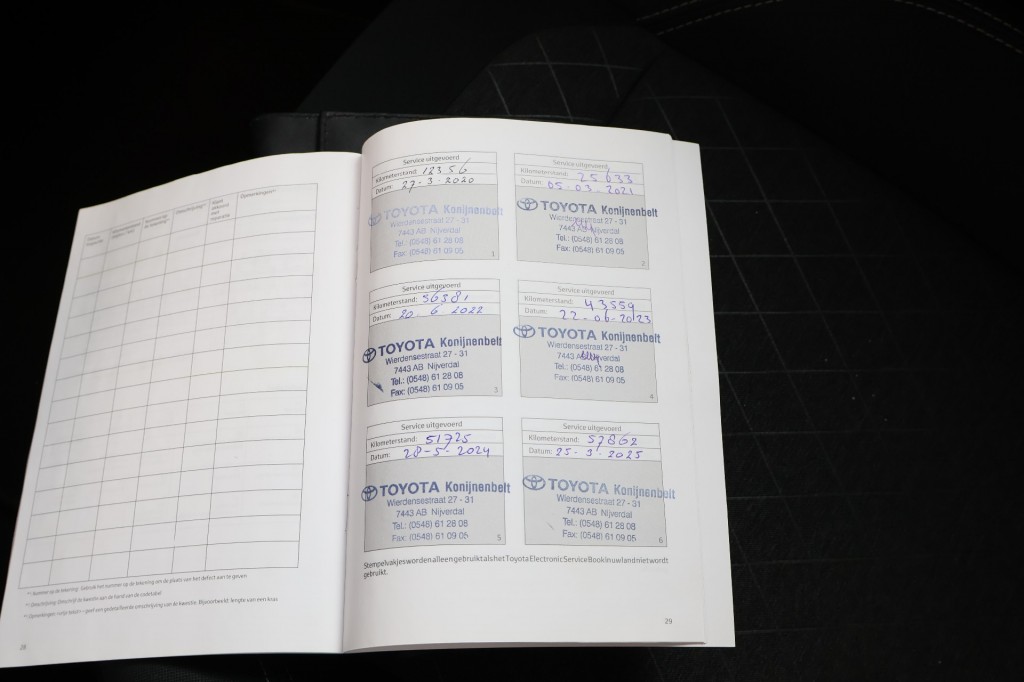 Opmerkingen**
Service uitgevoerd
Kilometerstand: 12356
Datum: 27-3-2020
TOYOTA Konijnenbelt
Wierdensestraat 27 - 31
7443 AB Nijverdal
Tel.: (0548) 61 28 08
Fax: (0548) 61 09 05
1
Service uitgevoerd
Kilometerstand: 25633
Datum: 05-03-2021
TOYOTA Konijnenbelt
Wierdensestraat 27 - 31
7443 AB Nijverdal
Tel.: (0548) 61 28 08
Fax: (0548) 61 09 05
2
Service uitgevoerd
Kilometerstand:
Datum: 20 6 2022
TOYOTA Konijnenbelt
Wierdensestraat 27 - 31
7443 AB Nijverdal
Tel.: (0548) 61 28 08
Fax: (0548) 61 09 05
3
Service uitgevoerd
Kilometerstand: 43559
Datum: 22-06-2023
TOYOTA Konijnenbelt
Wierdensestraat 27 - 31
7443 AB Nijverdal
Tel.: (0548) 61 28 08
Fax: (0548) 61 09 05
4
Service uitgevoerd
Kilometerstand: 51725
Datum: 28-5-2024
TOYOTA Konijnenbelt
Wierdensestraat 27 - 31
7443 AB Nijverdal
Tel.: (0548) 61 28 08
Fax: (0548) 61 09 05
5
Service uitgevoerd
Kilometerstand: 57862
Datum: 25-3-2025
TOYOTA Konijnenbelt
Wierdensestraat 27 - 31
7443 AB Nijverdal
Tel.: (0548) 61 28 08
Fax: (0548) 61 09 05
6
Stempelvakjes worden alleen gebruikt als het Toyota Electronic Service Book in uw land niet wordt
gebruikt.
28
29